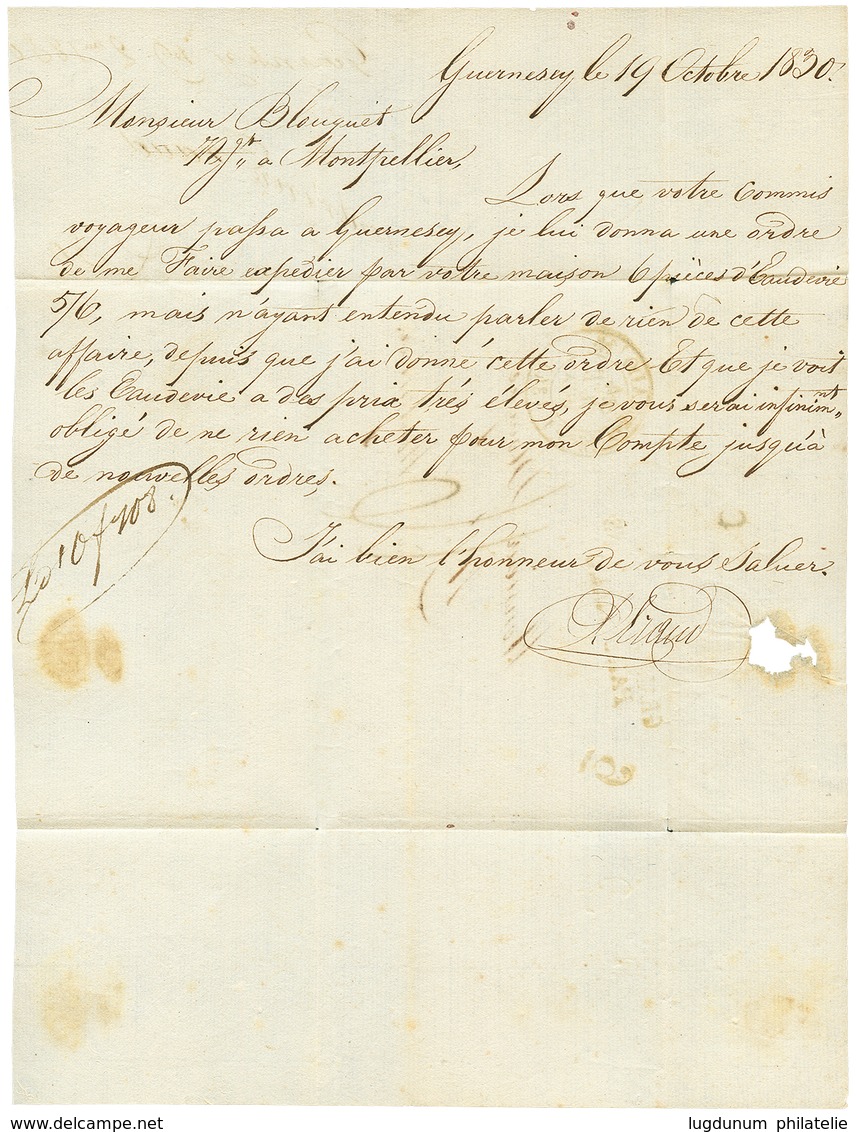 Guernesey le 19 Octobre 1830.
Monsieur Blouquet
Ngt. a Montpellier,
Lors que votre Commis
voyageur passa a Guernesey, je lui donna une ordre
de me Faire expedier par votre maison 6 pièces d'Eaudevie
5/6, mais n'ayant entendu parler de rien de cette
affaire, depuis que j'ai donné cette ordre Et que je voit
les Eaudevie a des prix trés élevés, je vous serai infinimnt
obligé de ne rien acheter pour mon Compte jusqu'à
de nouvelles ordres,
J'ai bien l'honneur de vous Saluer.
www.delcampe.net
lugdunum philatelie